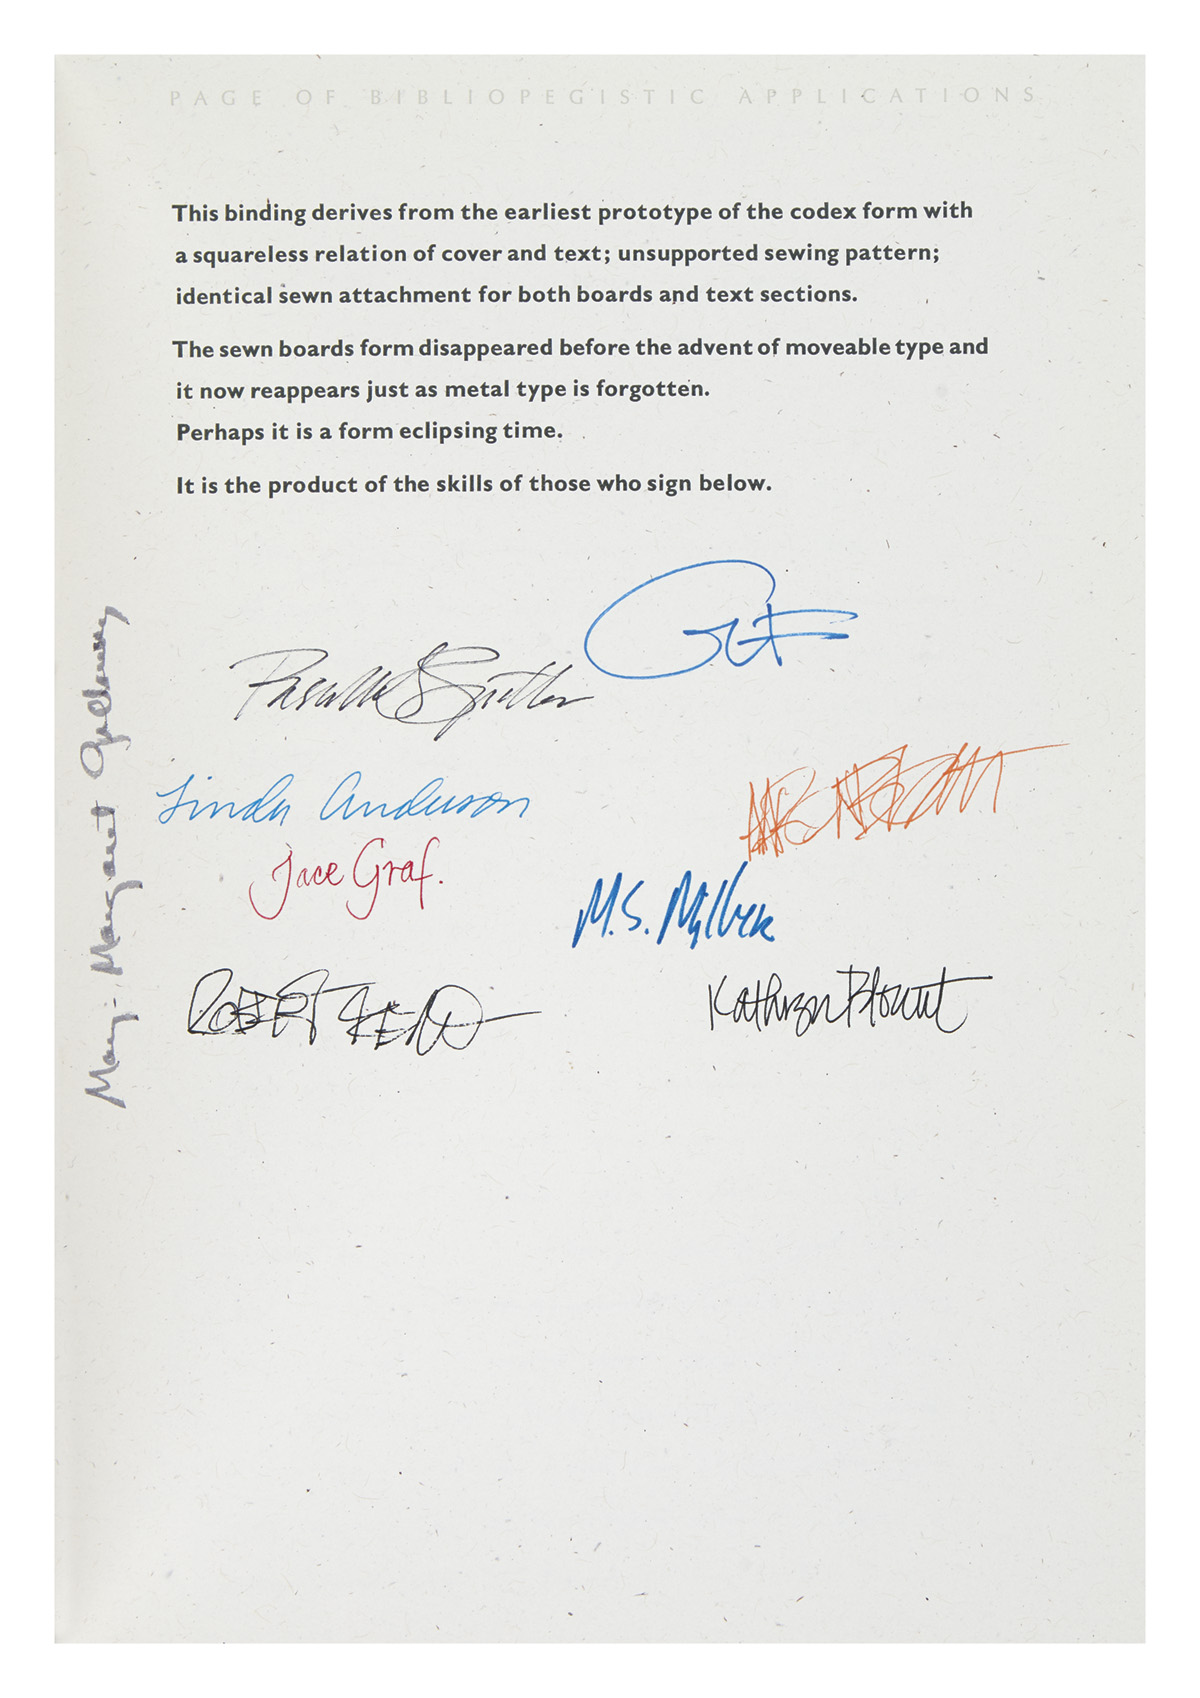 PAGE OF BIBLIOPEGISTIC APPLICATIONS
This binding derives from the earliest prototype of the codex form with
a squareless relation of cover and text; unsupported sewing pattern;
identical sewn attachment for both boards and text sections.
The sewn boards form disappeared before the advent of moveable type and
it now reappears just as metal type is forgotten.
Perhaps it is a form eclipsing time.
It is the product of the skills of those who sign below.
Linda Anderson
Jace Graf.
M.S.
Kathryn Blount
Margaret